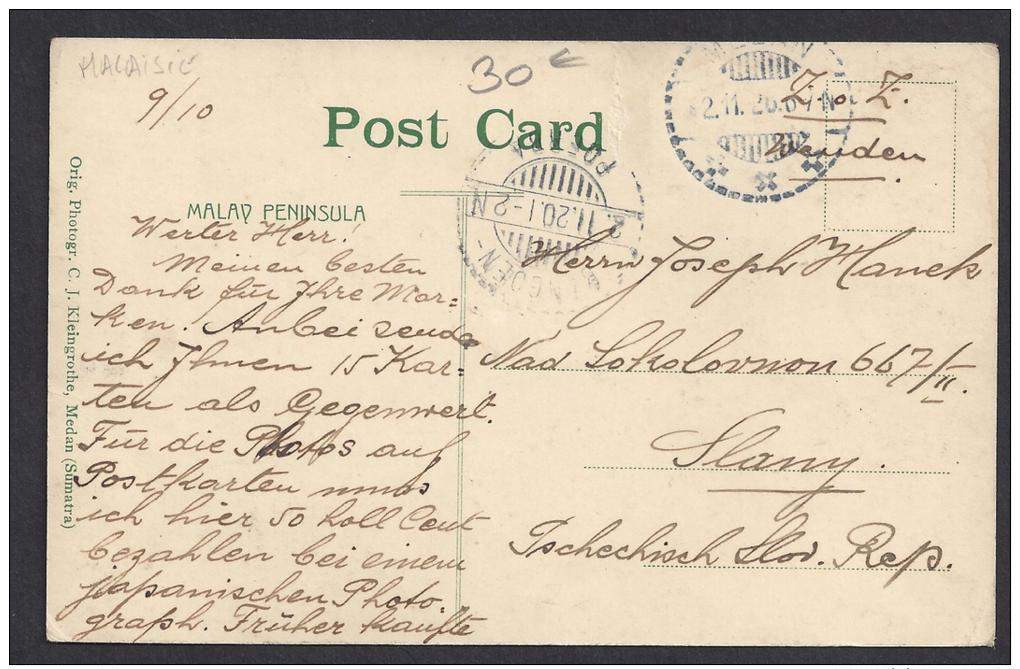 MALAISIE
9/10
30 c
Post Card
MEDAN
2.11.20.6-7N
Z. o. Z.
wenden
2.11.20.1-2N
MALAY PENINSULA
Orig. Photogr. C. J. Kleingrothe, Medan (Sumatra)
Werter Herr!
Meinen besten
Dank für Ihre Mar=
ken. Anbei sende
ich Ihnen 15 Kar=
ten als Gegenwert.
Für die Photos auf
Postkarten muss
ich hier 50 holl Cent
bezahlen bei einem
japanischen Photo.
graph. Früher kaufte
Herrn Joseph Hanek
Nad Sokolovnou 667/II.
Slany.
Tschechisch Slov. Rep.